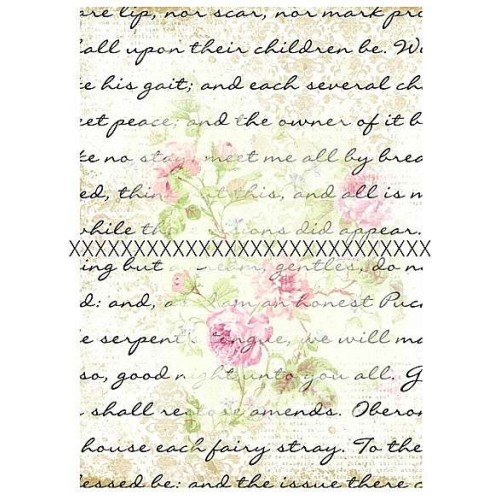 are lip, nor scar, nor mark pro
all upon their children be. W
e his gait; and each several ch
et peace; and the owner of it b
ke no stay, meet me all by brea
ed, thin this, and all is m
while th visions did appear.
XXXXXXXXXXXXXXXXXXXXXXXXXXXXXX
ing but ream, gentles, do n
d: and, a am an honest Puc
e serpent's tongue, we will ma
so, good night unto you all. G
shall restore amends. Oberon
house each fairy stray. To the
essed be: and the issue there c